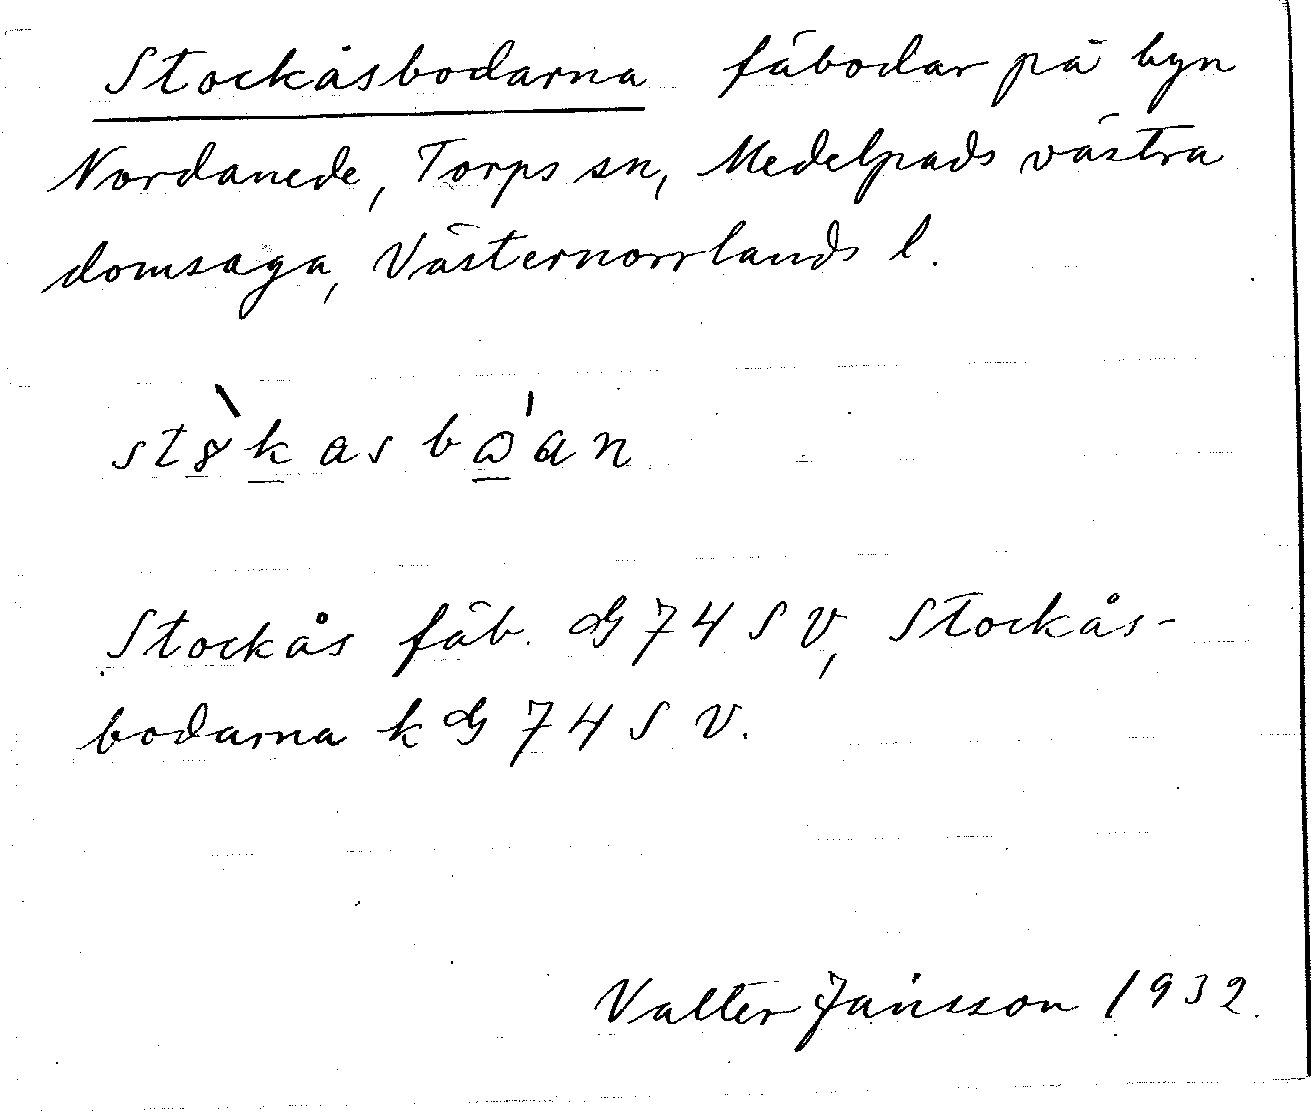 Stockåsbodarna fäbodar på byn
Nordanede, Torps sn, Medelpads västra
domsaga, Västernorrlands l.
Stockås fäb. G 74 S V, Stockås-
bodarna k G 74 S V.
Valter Jansson 1932.